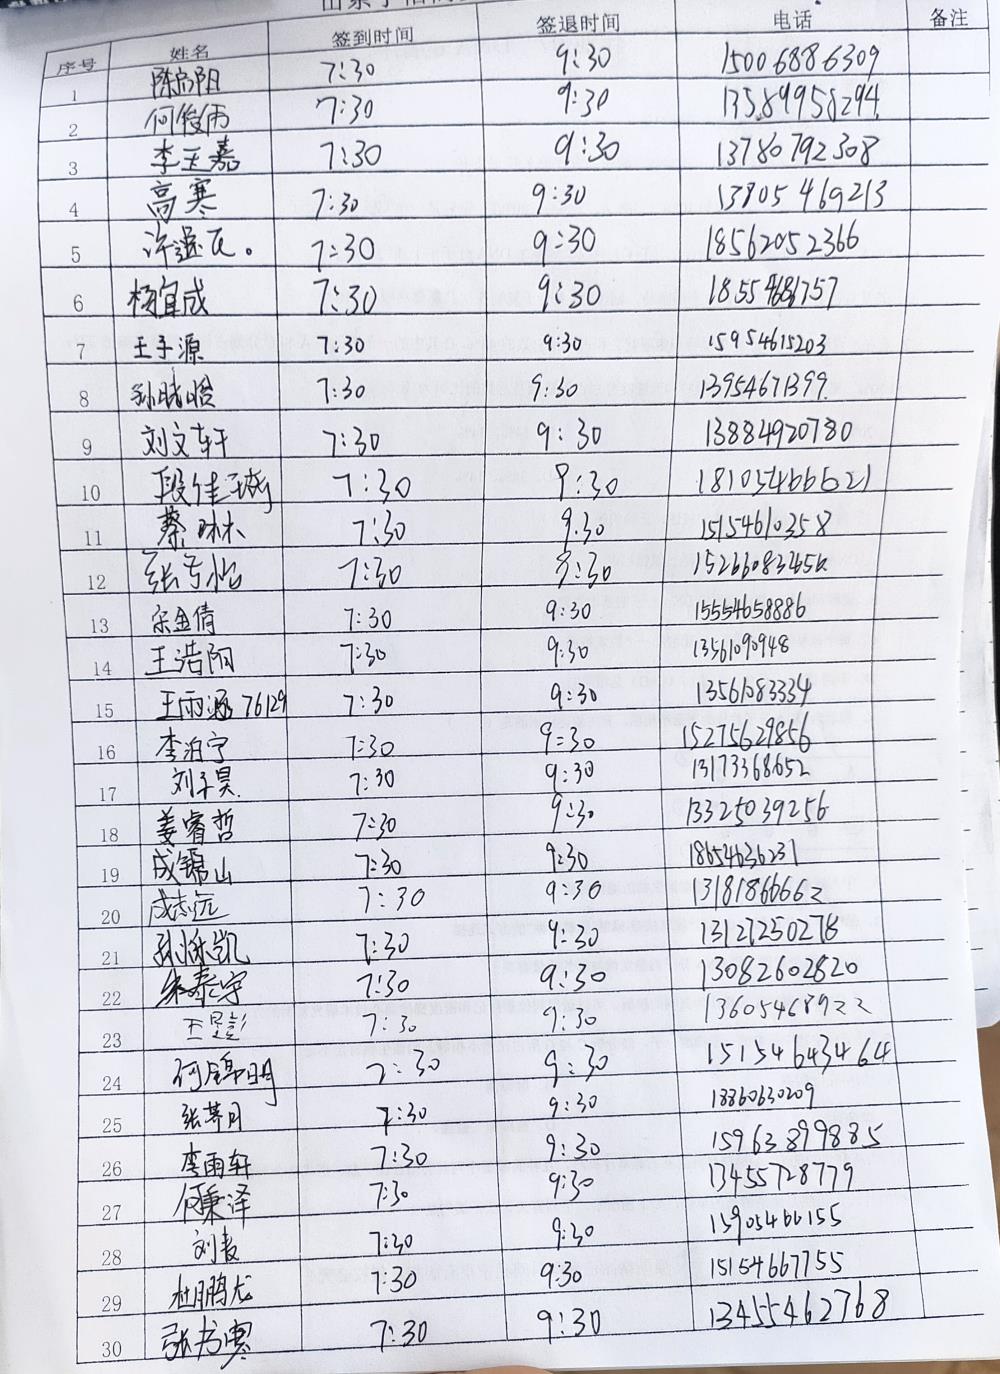 序号 姓名 签到时间 签退时间 电话 备注
1 陈启阳 7:30 9:30 15006886309
2 何俊雨 7:30 9:30 13589958294
3 李玉嘉 7:30 9:30 13780792308
4 高寒 7:30 9:30 13805469213
5 7:30 9:30 18562052366
6 杨宜成 7:30 9:30
7 王子源 7:30 9:30 15954615203
8 7:30 9:30 13954671399
9 刘文轩 7:30 9:30 13884920780
10 段佳 7:30 9:30
11 蔡琳 7:30 9:30 15154610358
12 7:30 9:30
13 宗金倩 7:30 9:30 15554658886
14 王浩阳 7:30 9:30 13561090948
15 王雨涵 76129 7:30 9:30 13561083334
16 李泊宁 7:30 9:30 15275629856
17 刘子昊 7:30 9:30 13173368652
18 姜睿哲 7:30 9:30 13325039256
19 成锦山 7:30 9:30 18654636231
20 成志远 7:30 9:30 13181866662
21 7:30 9:30 13127250278
22 朱泰宇 7:30 9:30 13082602820
23 7:30 9:30 13605468922
24 何锦明 7:30 9:30 15154643464
25 7:30 9:30 18860630209
26 李雨轩 7:30 9:30 15963899885
27 何秉泽 7:30 9:30 13455728779
28 7:30 9:30 15905466155
29 杜鹏龙 7:30 9:30 15154667755
30 张书寒 7:30 9:30 13455462768